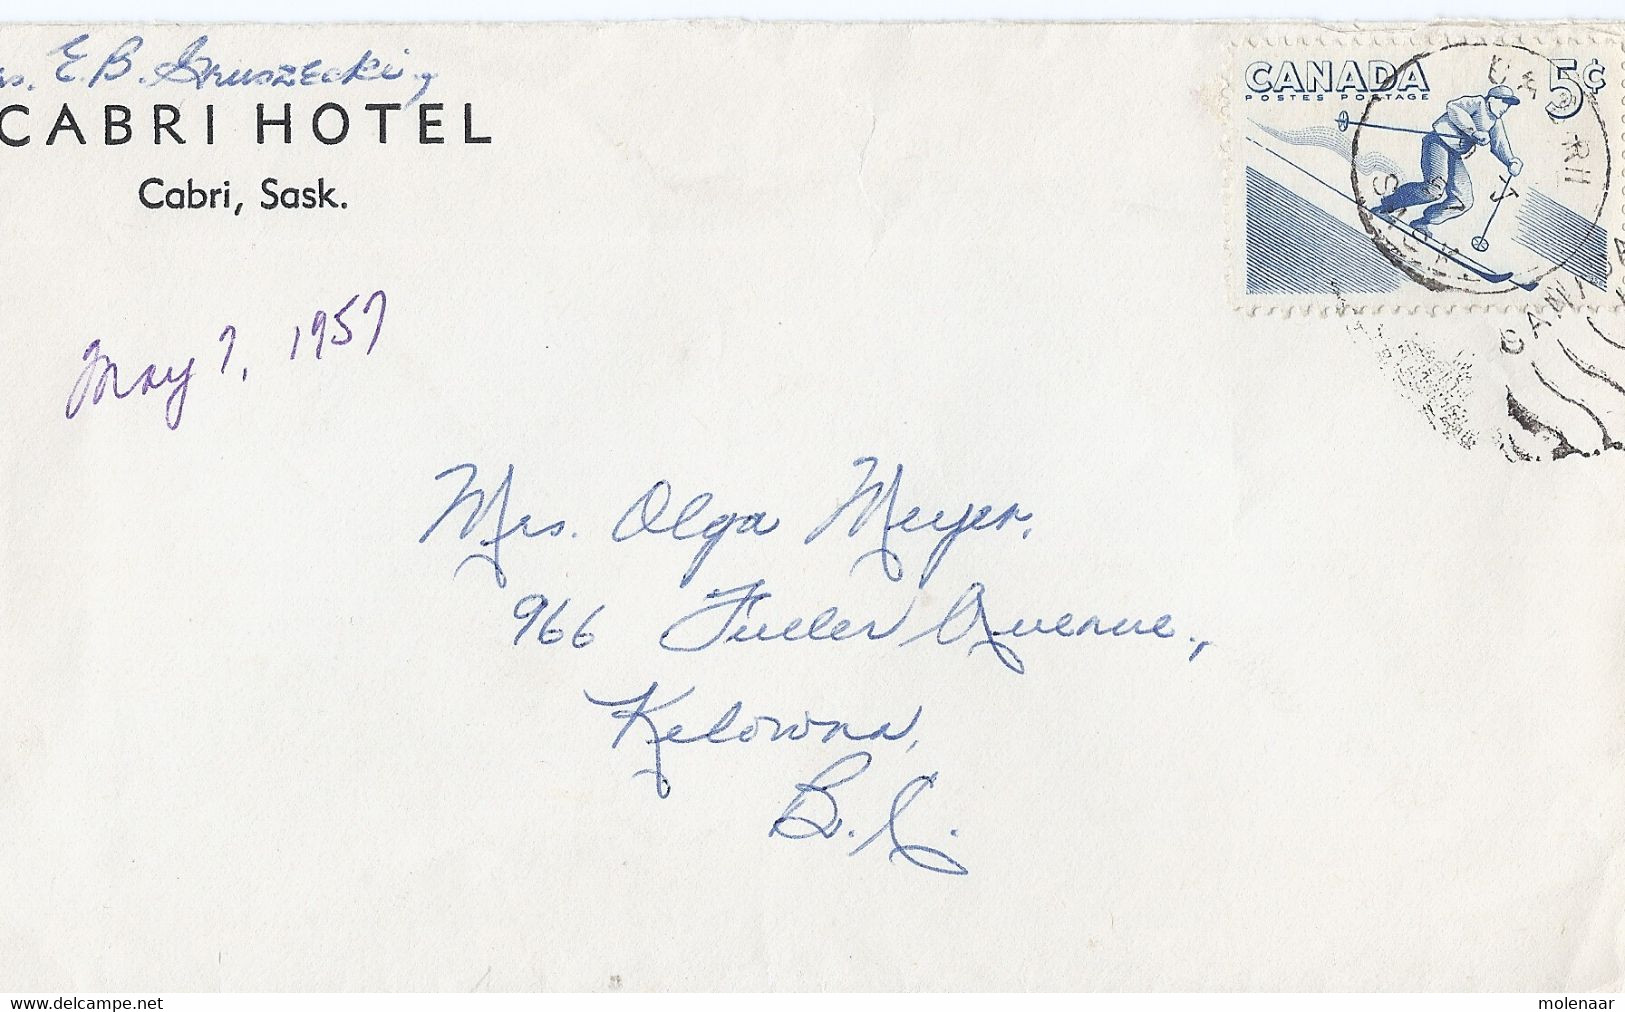 E.B. Gruszecki,
CABRI HOTEL
Cabri, Sask.
CANADA 5¢
POSTES POSTAGE
May 7, 1957
Mrs. Olga Meyer,
966 Fuller Avenue,
Kelowna,
B.C.
www.delcampe.net
molenaar